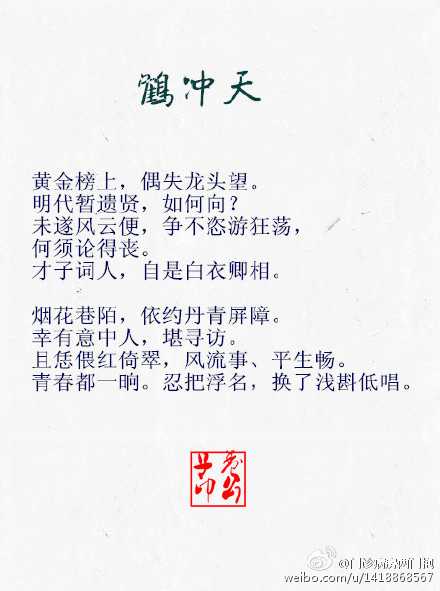 鹤冲天
黄金榜上，偶失龙头望。
明代暂遗贤，如何向？
未遂风云便，争不恣游狂荡，
何须论得丧。
才子词人，自是白衣卿相。
烟花巷陌，依约丹青屏障。
幸有意中人，堪寻访。
且恁偎红倚翠，风流事、平生畅。
青春都一晌。忍把浮名，换了浅斟低唱。
weibo.com/u/1418868567